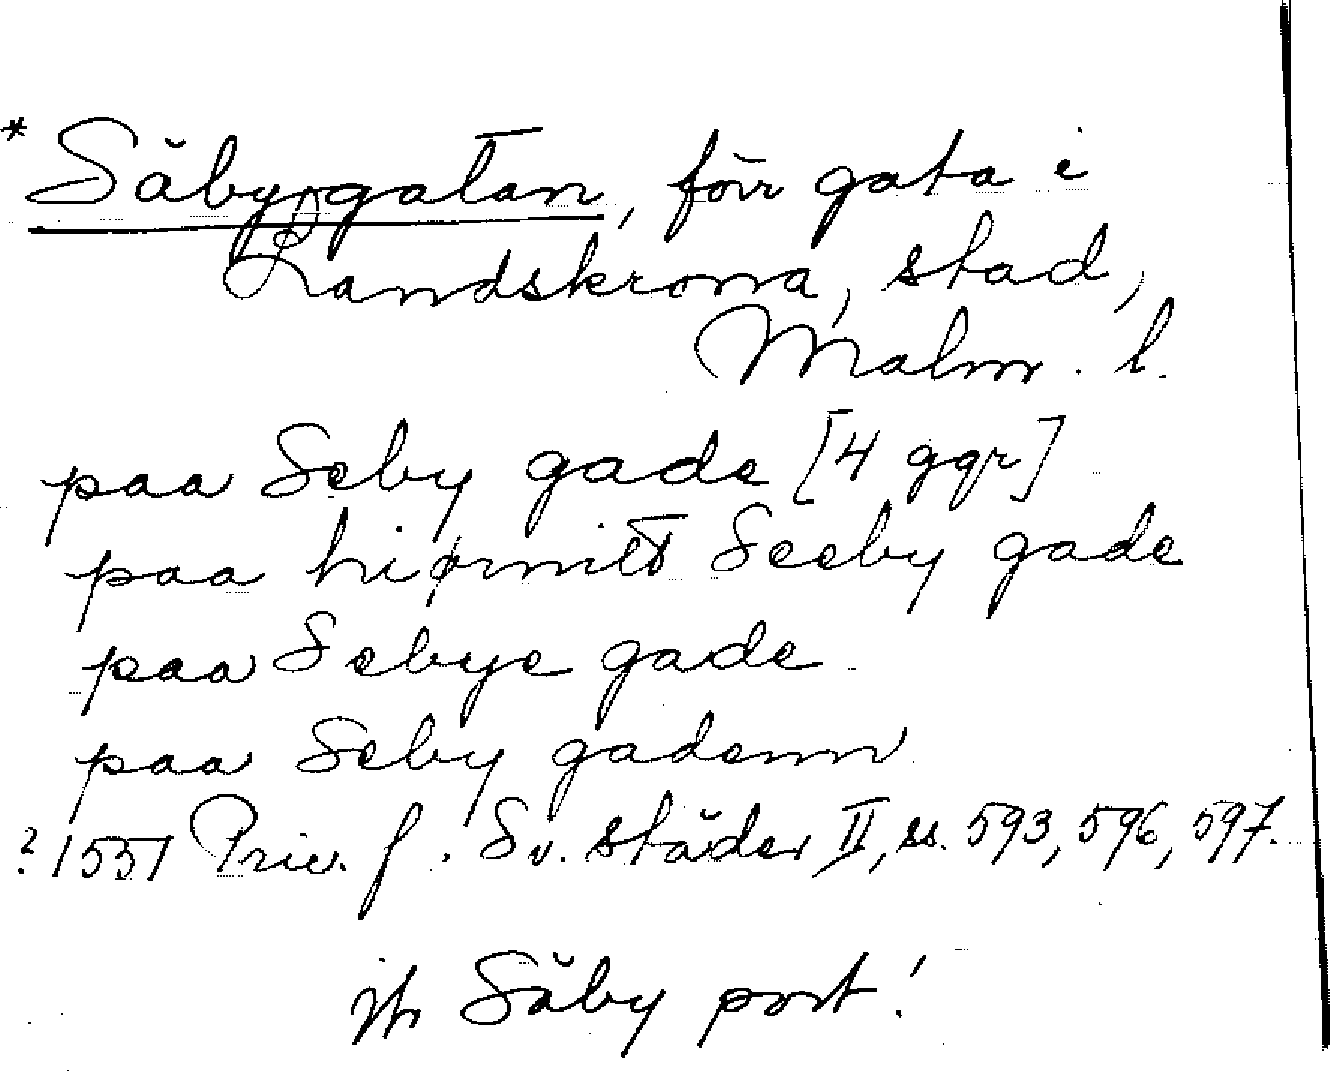 * Säbygatan, förr gata i
Landskrona, stad,
Malm. l.
paa Seby gade [4 ggr]
paa hiørnitt Seeby gade
paa Sebye gade
paa Seby gadenn
? 1551 Priv. f. Sv. städer II, ss. 593, 596, 597.
jfr Säby port!